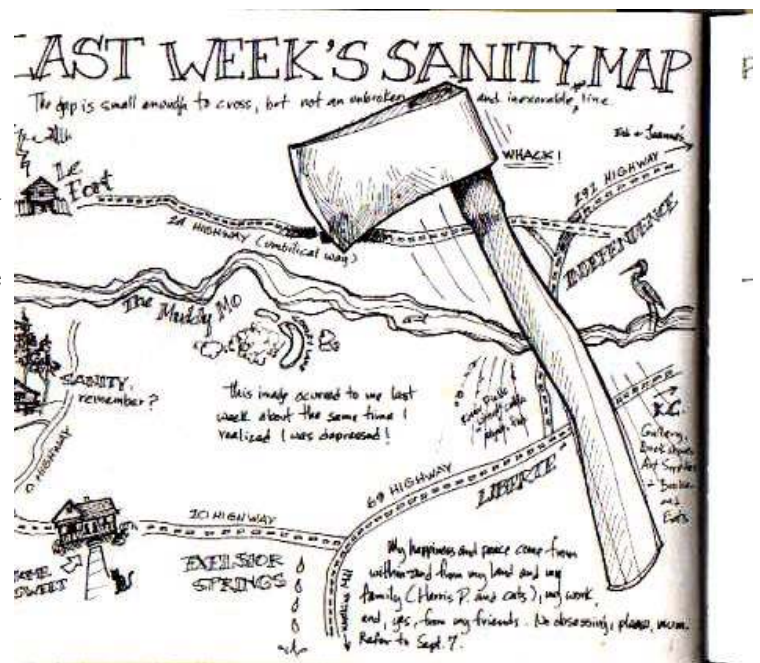 LAST WEEK'S SANITY MAP
The gap is small enough to cross, but not an unbroken and inexorable line.
WHACK!
292 HIGHWAY
Le
Fort
24 HIGHWAY (umbilical way)
INDEPENDENCE
The Muddy Mo
SANITY,
remember?
This image occured to me last
week about the same time I
realized I was depressed!
HIGHWAY
K.C.
Gallery,
Art Supplies
and
Eats
69 HIGHWAY
LIBERTE
10 HIGHWAY
EXELSIOR
SPRINGS
HOME
SWEET
My happiness and peace come from
within and from my land and my
family (Harris P. and cats), my work,
and, yes, from my friends. No obsessing, please, mum.
Refer to Sept. 7.